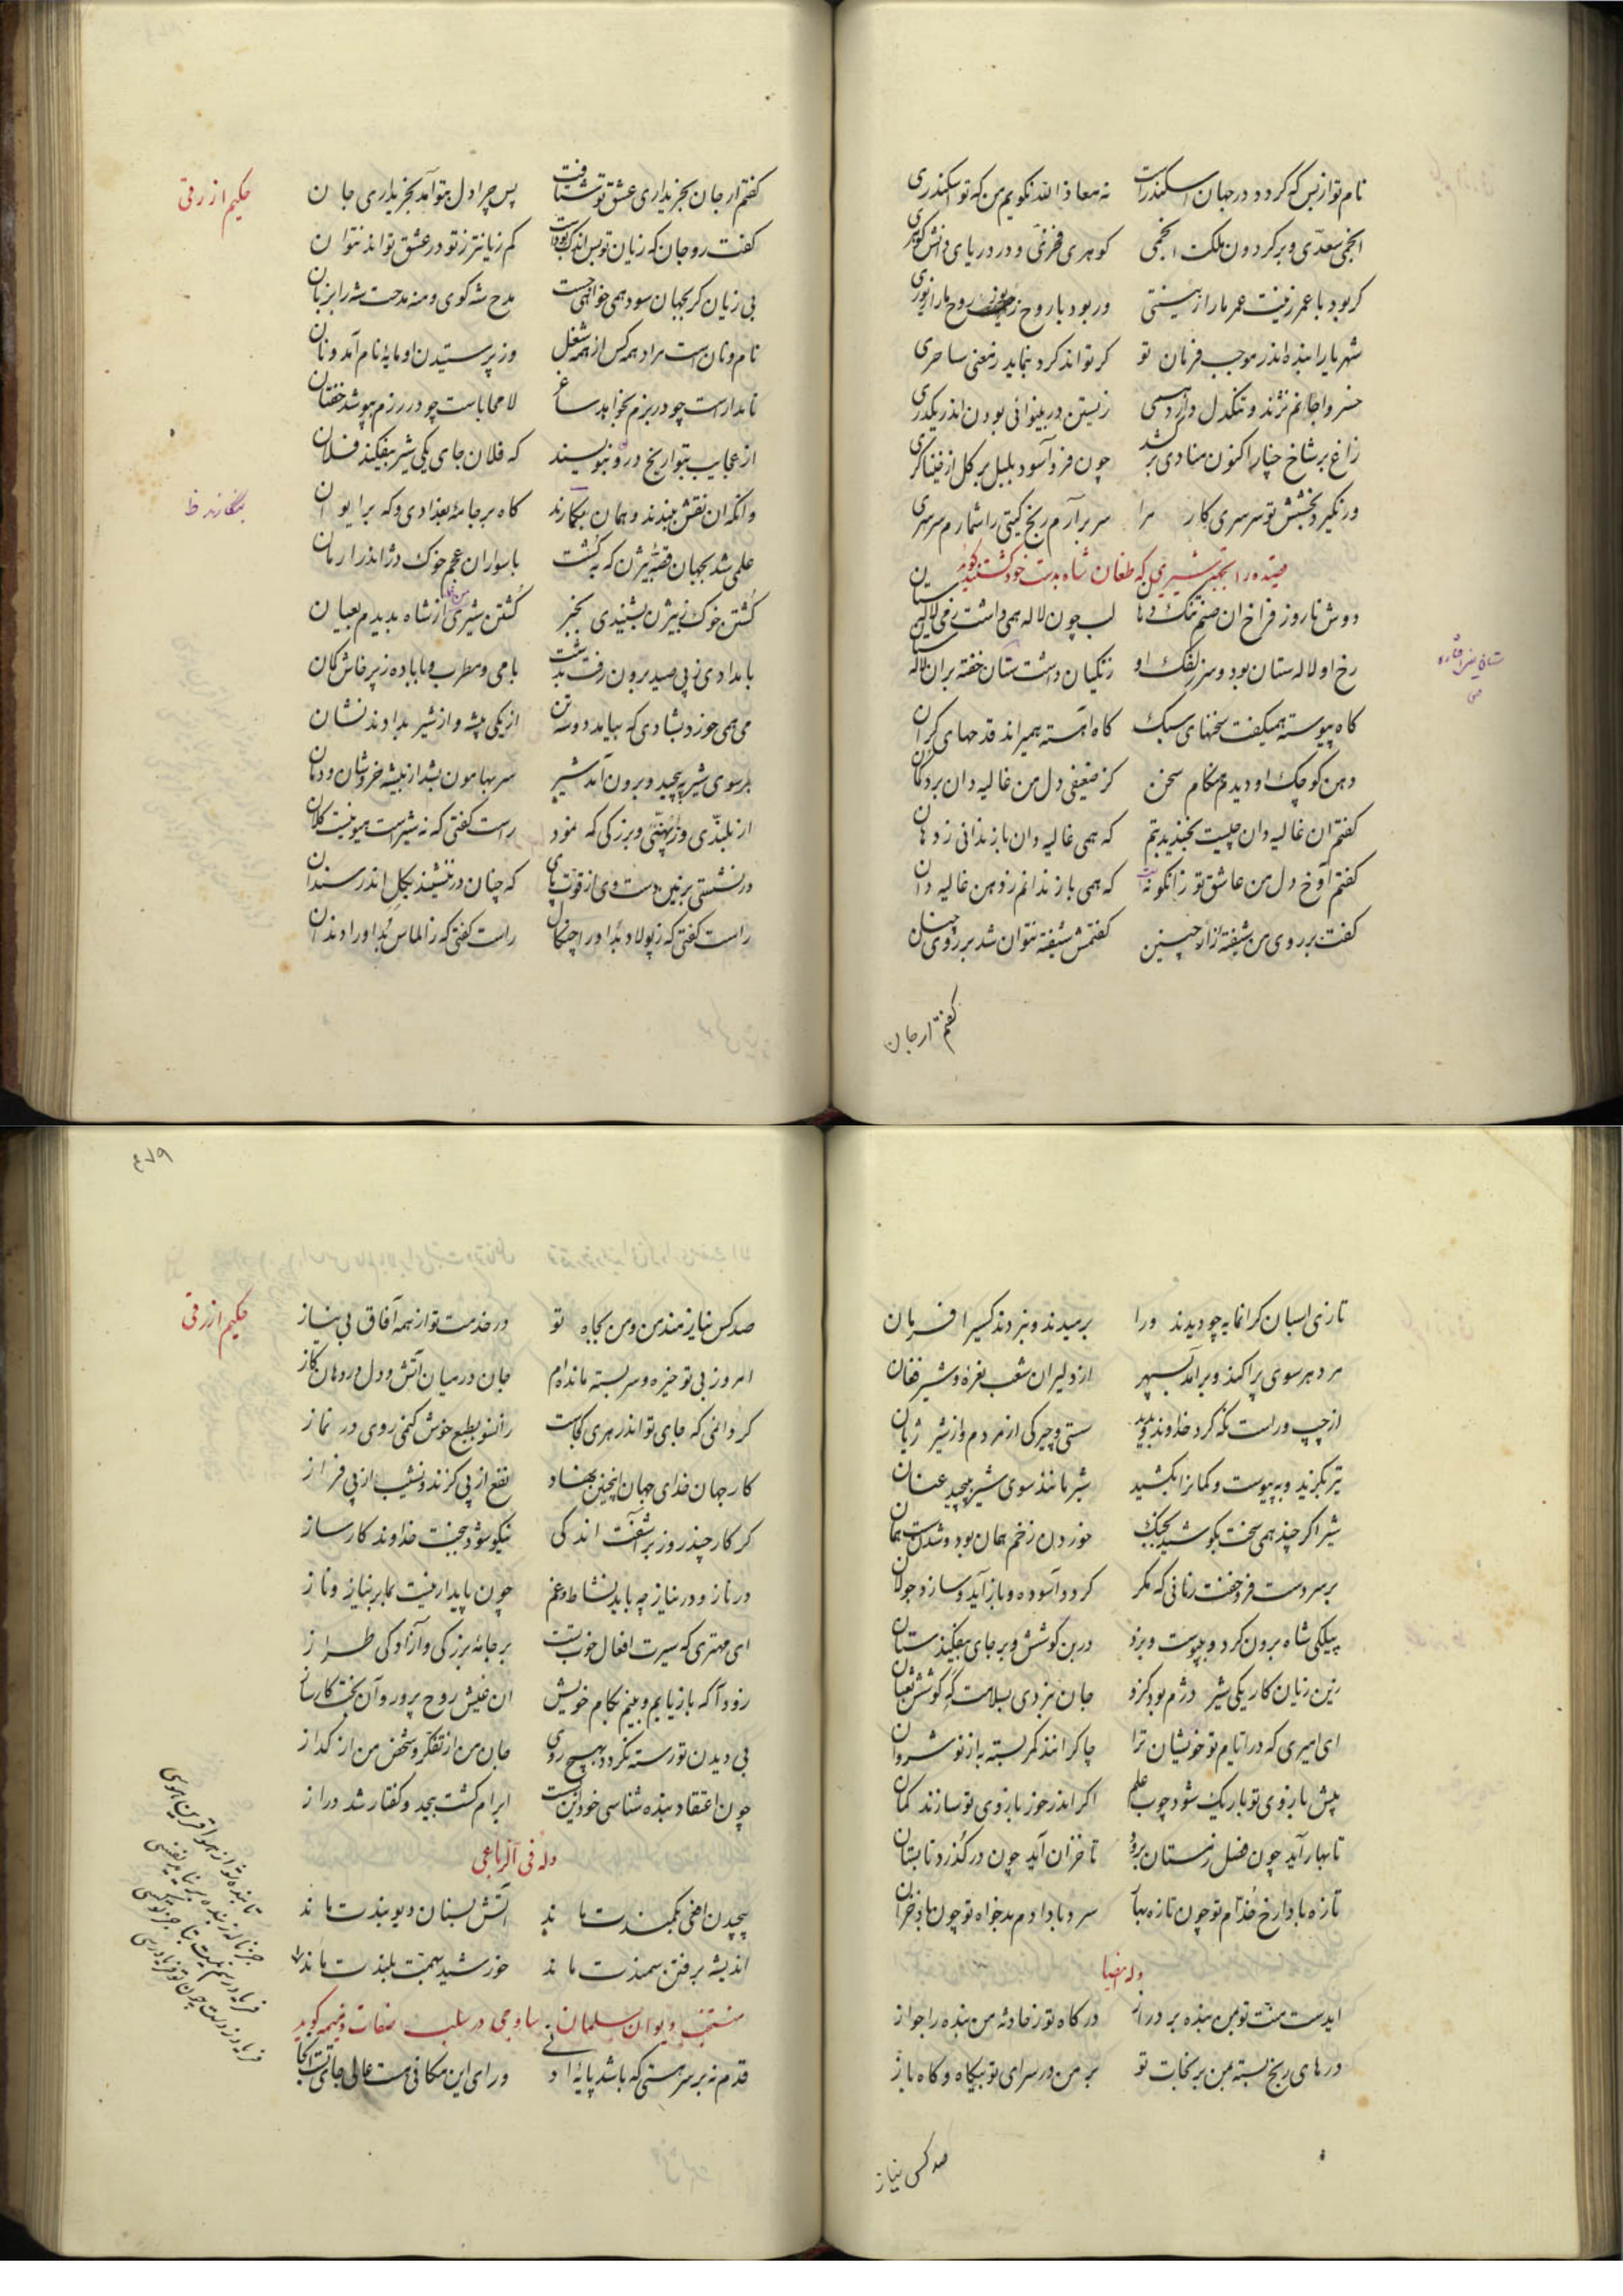 نام تو از بس که گردد در جهان اسکندرا‌ست نه معاذ الله نگویم من که تو اسکندری
انجمی سعدی و بر گردون ملکت انجمی گوهری فخری و در دریای دانش گوهری
گر بود با عمر زینت عمر ما را زینتی ور بود با روح زیور روح ما را زیوری
شهریارا بنده اندر موجب فرمان تو گر تواند کرد بنماید ز معنی ساحری
خسروا جانم نژند و تنگدل دارد همی زیستن در بینوائی بودن اندر یکدری
زاغ بر شاخ چنار اکنون منادی برکشد چون فرو آسود بلبل بر گل از خنیاگری
ور نگیرد بخشش تو سرسری کار مرا سر برآرم رنج گیتی را شمارم سرسری
قصیده در انجیر شیری که طغان شاه بدست خود کشته گوید
دوش تا روز فراخ آن صنم تنگ دهان لب چون لاله همی داشت ز می لاله‌ستان
رخ او لاله ستان بود و سر زلفک او زنگیان داشت ستان خفته بر آن لاله ستان
گاه پیوسته همیگفت سخنهای سبک گاه آهسته همیراند قدحهای گران
دهن کوچک او دیدم هنگام سخن کز ضعیفی دل من غالیه دان برد گمان
گفتم آن غالیه دان چیست بخندید بتم که همی غالیه دان باز ندانی ز دهان
گفتم آوخ دل من عاشق تو زانگونه است که همی باز ندانم ز دهن غالیه دان
گفت بر روی من شیفته از چنین گفتمش شیفته نتوان شد بر روی چنان
گفتم ار جان
ستان
حکیم ازرقی
گفتم ار جان بخریداری عشق تو شتافت پس چرا دل بتو آمد بخریداری جان
گفت رو جان که زیان تو بس اندک بود‌ست کم زیانتر ز تو در عشق تو اند نتوان
بی زیان گر بجهان سود همی خواهی جست مدح شه گوی و منه مدحت شه را بزبان
نام و نان است مراد همه کس از همه شغل وز پرستیدن او مایهٔ نام آمد و نان
نامدار است چو در بزم بخواهد ساغر لامحاباست چو در رزم بپوشد خفتان
از عجایب بتواریخ درون بنویسند که فلان جای یکی شیر بیفکند فلان
وانگه آن نقش ببندند و همان بنگارند گاه بر جامهٔ بغدادی و گه بر ایوان
بنگارند ظ
علمی شد بجهان قصهٔ بیژن که بکشت با سواران عجم خوک دژ اندر ارمان
کشتن خوک ز بیژن بشنیدی بخبر کشتن شیری از شاه بدیدم بعیان
بامدادی ز پی صید برون رفت بدشت با می و مطرب و با باده ز پرخاش کان
می همی خورد بشادی که بیامد دو سه تن از یکی بیشه و از شیر بدادند نشان
بر سوی شیر بپیچید و برون آمد شیر سر بهامون بشد از بیشه خروشان و دمان
از بلندی و ز پهنی و بزرگی که نمود راست گفتی که نه شیر است هیونیست کلان
در نشستی بزمین دست وی از قوت پای که چنان در ننشیند بگل اندر سندان
راست گفتی که ز پولاد بد او را چنگال راست گفتی که ز الماس بد او را دندان
تازی اسبان گرانمایه چو دیدند ورا برمیدند و نبردند کسیرا فرمان
مرد هر سوی پراکند و برآمد بسپهر از دلیران شغب و نعره و شیر فغان
از چپ و راست نگه کرد خداوند بدید سستی و چیرگی از مردم و از شیر ژیان
تیر بگزید و بپیوست و کمانرا بکشید شیر مانند سوی شیر بپیچید عنان
شیر اگر چند همی سخت بکوشید بجنگ خوردن زخم همان بود و شدن سست همان
بر سر دست فرو خفت زمانی که مگر گردد آسوده و باز آید و سازد جولان
پیلکی شاه برون کرد و بپیوست و بزد در بن گوشش و بر جای بیفکند ستان
زین زیان کار یکی شیر دژم بود کزو جان نبردی بسلامت گه کوشش ثعبان
ای امیری که در ایام تو خویشان ترا چاکرانند کمر بسته به از نوشروان
پیش بازوی تو باریک شود چوب علم اگر اندر خور بازوی تو سازند کمان
تا بهار آید چون فصل زمستان برود تا خزان آید چون در گذرد تابستان
تازه بادا رخ خدام تو چون تازه بهار سرد بادا دم بدخواه تو چون باد خزان
وله ایضا
ایدست منت تو بمن بنده بر دراز درگاه تو ز حادثه من بنده را جواز
درهای رنج بسته بمن بر سخات تو بر من در سرای تو بیگاه و گاه باز
صد کس نیاز
۴۷۹
حکیم ازرقی
صد کس نیازمند من و من بجاه تو در خدمت تو از همه آفاق بی نیاز
امروز بی تو خیره و سر بسته مانده‌ام جان در میان آتش و دل در دهان گاز
گر دانمی که جای تو اندر هری کجاست زانسو بطبع خوش کنمی روی در نماز
کار جهان خدای جهان اینچنین نهاد نفع از پی گزند و نشیب از پی فراز
گر کار چند روز برآشفت اندکی نیکو شود ببخت خداوند کارساز
در ناز و در نیاز چه باید نشاط و غم چون پایدار نیست بما بر نیاز و ناز
ای مهتری که سیرت افعال خوب تست بر جامهٔ بزرگی و آزادگی طراز
زود آ که باز یابم و بینم بکام خویش آن عیش روح پرور و آن بخت کارساز
بی دیدن تو رسته نگردد بهیچ روی جان من از تفکر و شخص من از گداز
چون اعتقاد بنده شناسی خود این بست ابرام گشت بیحد و گفتار شد دراز
وله فی الرباعی
پیچیدن افعی بکمندت ماند آتش بسنان دیوبندت ماند
اندیشه برفتن سمندت ماند خورشید بهمت بلندت ماند
منتخب دیوان سلمان ساوجی در سلب صفات ذمیمه گوید
قدم نه بر سر هستی که باشد پایهٔ ادنی ورای این مکانی هست عالی جای تست آنجا